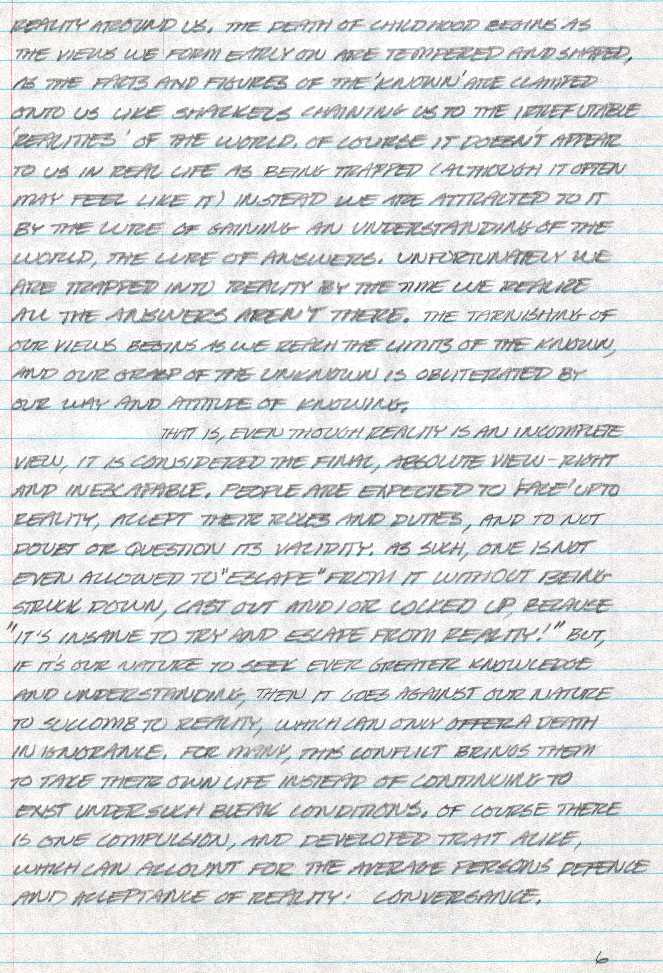 REALITY AROUND US. THE DEATH OF CHILDHOOD BEGINS AS
THE VIEWS WE FORM EARLY ON ARE TEMPERED AND SHAPED,
AS THE FACTS AND FIGURES OF THE 'KNOWN' ARE CLAMPED
ONTO US LIKE SHACKELS CHAINING US TO THE IRREFUTABLE
'REALITIES' OF THE WORLD. OF COURSE IT DOESN'T APPEAR
TO US IN REAL LIFE AS BEING TRAPPED (ALTHOUGH IT OFTEN
MAY FEEL LIKE IT) INSTEAD WE ARE ATTRACTED TO IT
BY THE LURE OF GAINING AN UNDERSTANDING OF THE
WORLD, THE LURE OF ANSWERS. UNFORTUNATELY WE
ARE TRAPPED INTO REALITY BY THE TIME WE REALIZE
ALL THE ANSWERS AREN'T THERE. THE TARNISHING OF
OUR VIEWS BEGINS AS WE REACH THE LIMITS OF THE KNOWN,
AND OUR GRASP OF THE UNKNOWN IS OBLITERATED BY
OUR WAY AND ATTITUDE OF KNOWING.
THAT IS, EVEN THOUGH REALITY IS AN INCOMPLETE
VIEW, IT IS CONSIDERED THE FINAL, ABSOLUTE VIEW - RIGHT
AND INESCAPABLE. PEOPLE ARE EXPECTED TO 'FACE' UP TO
REALITY, ACCEPT THEIR ROLES AND DUTIES, AND TO NOT
DOUBT OR QUESTION ITS VALIDITY. AS SUCH, ONE IS NOT
EVEN ALLOWED TO "ESCAPE" FROM IT WITHOUT BEING
STRUCK DOWN, CAST OUT AND/OR LOCKED UP, BECAUSE
"IT'S INSANE TO TRY AND ESCAPE FROM REALITY!" BUT,
IF IT'S OUR NATURE TO SEEK EVER GREATER KNOWLEDGE
AND UNDERSTANDING, THEN IT GOES AGAINST OUR NATURE
TO SUCCOMB TO REALITY, WHICH CAN ONLY OFFER A DEATH
IN IGNORANCE. FOR MANY, THIS CONFLICT BRINGS THEM
TO TAKE THEIR OWN LIFE INSTEAD OF CONTINUING TO
EXIST UNDER SUCH BLEAK CONDITIONS. OF COURSE THERE
IS ONE COMPULSION, AND DEVELOPED TRAIT ALIKE,
WHICH CAN ACCOUNT FOR THE AVERAGE PERSONS DEFENCE
AND ACCEPTANCE OF REALITY: CONVERSANCE.
6